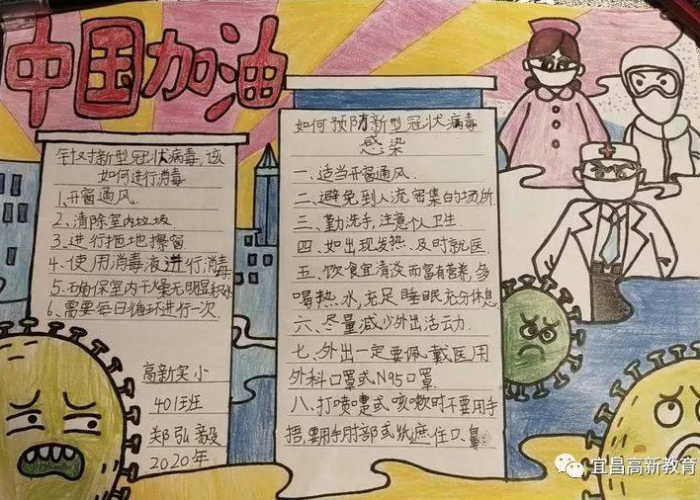 中国加油
针对新型冠状病毒,该
如何进行消毒
1、开窗通风
2、清除室内垃圾
3、进行拖地擦窗
4、使用消毒液进行消毒
5、确保室内干燥无明显积水
6、需要每日循环进行一次
高新实小
401班
郑弘毅
2020年
如何预防新型冠状病毒
感染
一、适当开窗通风.
二、避免到人流密集的场所
三、勤洗手,注意个人卫生.
四、如出现发热、及时就医
五、饮食宜清淡而富有营养,多
喝热水,充足睡眠充分休息.
六、尽量减少外出活动.
七、外出一定要佩戴医用
外科口罩或N95口罩.
八、打喷嚏或咳嗽时不要用手
捂,要用手肘部或纸庶住口、鼻
宜昌高新教育